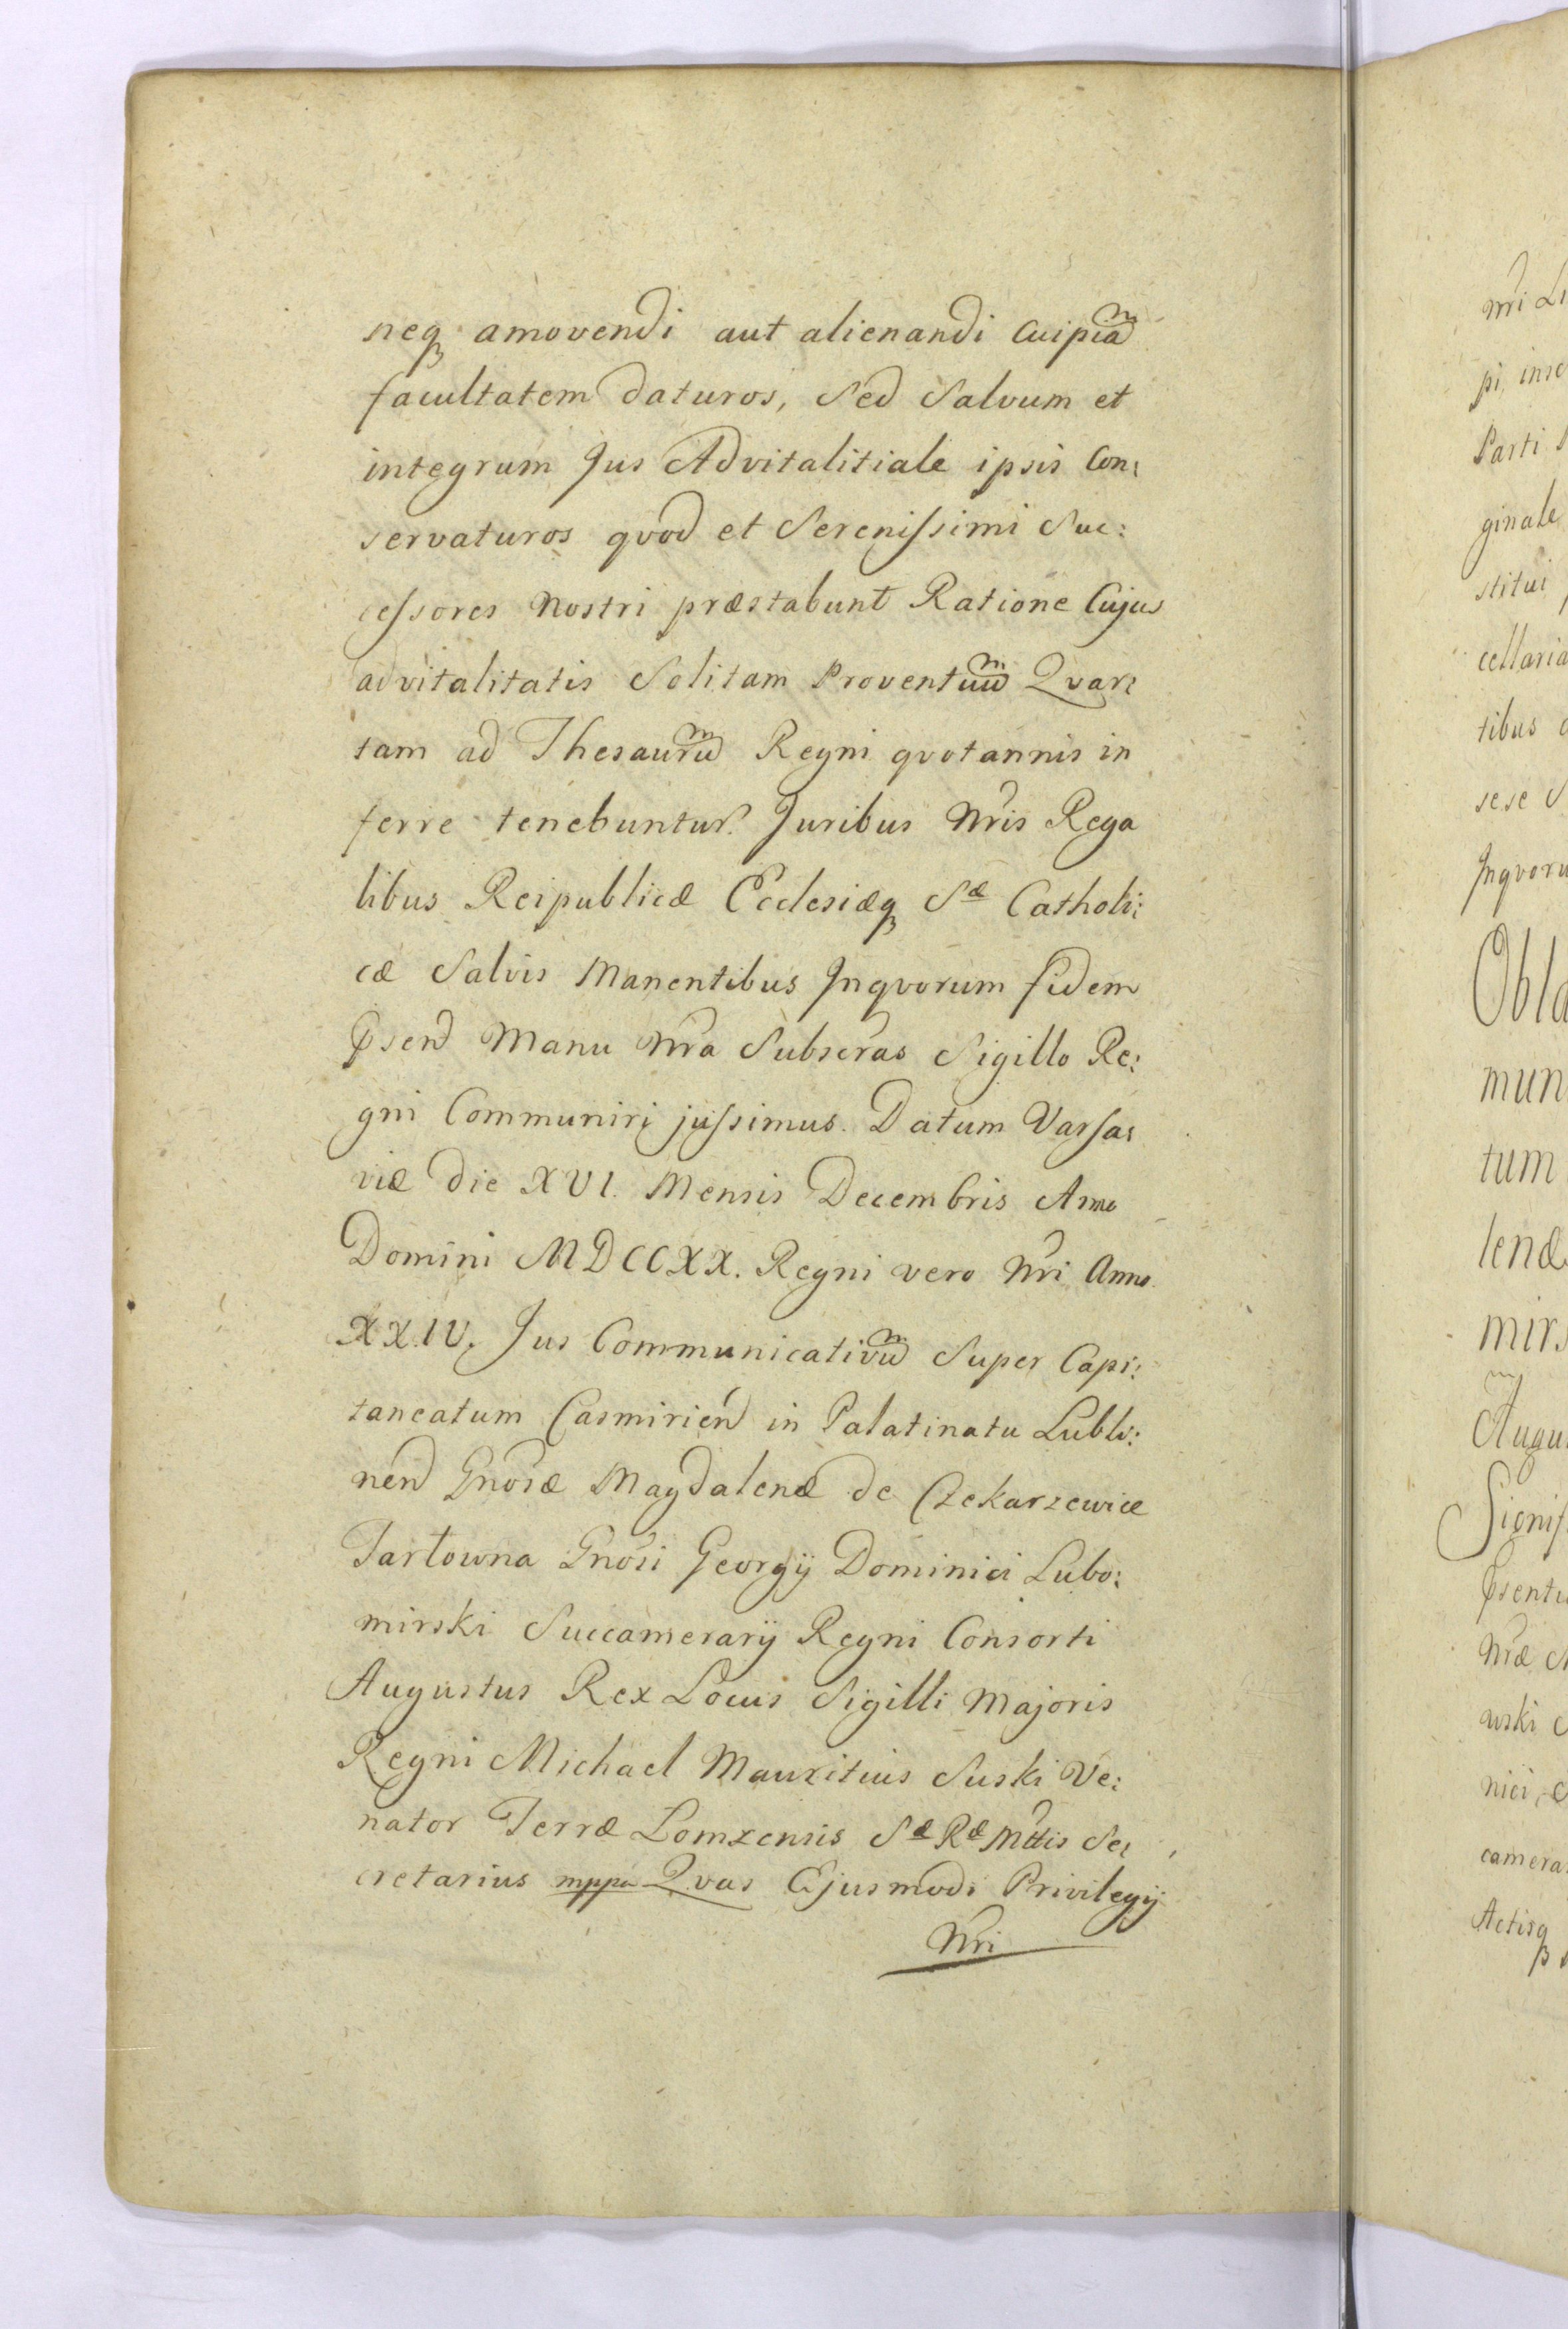 neq amovendi aut alienandi cuipiam
facultatem daturos, Sed Salvum et
integrum Jus Advitalitiale ipsis Con:
servaturos qvod et Serenissimi Suc:
cessores Nostri præstabunt Ratione Cujus
advitalitatis Solitam Proventuum Qvar:
tam ad Thesaurum Regni qvotannis in
ferre tenebuntur. Juribus Nris Rega
libus Reipublicæ Ecclesiæq Sæ Catholi:
cæ Salvis Manentibus Jnqvorum fidem
Psend Manu Nra Subscras Sigillo Re:
gni Communiri jussimus. Datum Varsa:
viæ die XVI. Mensis Decembris Anno
Domini MDCCXX. Regni vero Nri Anno
XXIV. Jus Communicativum Super Capi:
taneatum Casmirien in Palatinatu Lubli:
nen Gnosæ Magdalenæ de Czekarzewice
Tarłowna Gnosi Georgij Dominici Lubo:
mirski Succamerarij Regni Consorti
Augustus Rex Locus Sigilli Majoris
Regni Michael Mauritius Suski Ve:
nator Terræ Lomzensis Sæ Ræ Mttis Se:
cretarius mppa Qvas Ejusmodi Privilegij
Nri
nri
pi,
Parti
ginale
stitui
cellaria
tibus
sese
Jnqvoru
Obla
mun
tum
lenæ
mirs
Augu
Signif
Psentu
Nræ
wski
nici,
camera
Actisq